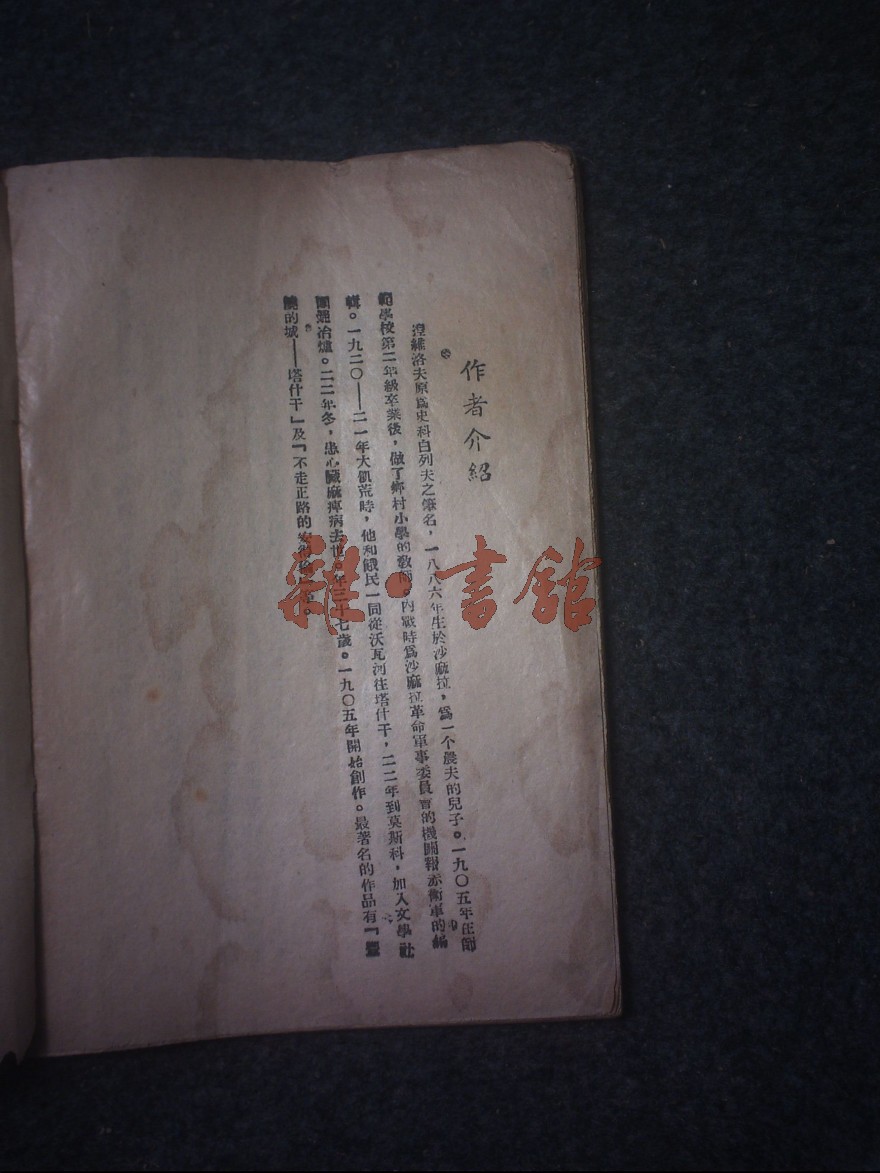 作者介紹
涅維洛夫原爲史科白列夫之筆名,一八八六年生於沙麻拉,爲一个農夫的兒子。一九〇五年在師
範學校第二年級卒業後,做了鄉村小學的教師。內戰時爲沙麻拉革命軍事委員會的機關報赤衛軍的編
輯。一九二〇——二一年大飢荒時,他和餓民一同從沃瓦河往塔什干,二二年到莫斯科,加入文學社
團冶爐。二三年冬,患心臟麻痺病去世。年三十七歲。一九〇五年開始創作。最著名的作品有「豐
饒的城——塔什干」及「不走正路的安得倫」等。
雜·書館